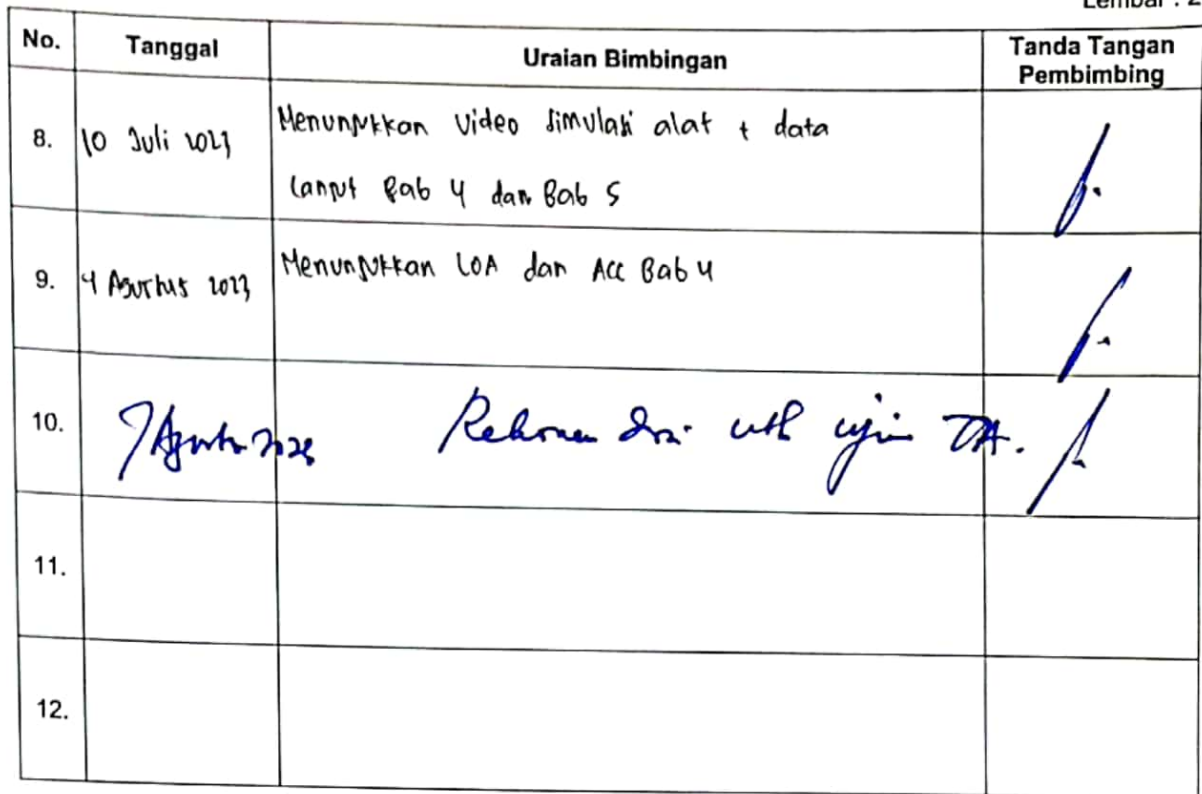 Lembar : 2
No. Tanggal Uraian Bimbingan Tanda Tangan Pembimbing
8. 10 Juli 2023 Menunjukkan video simulasi alat + data
lanjut Bab 4 dan Bab 5
9. 4 Agustus 2023 Menunjukkan LOA dan ACC Bab 4
10. 7 Agustus 2023 Rekomendasi utk ujian TA.
11.
12.